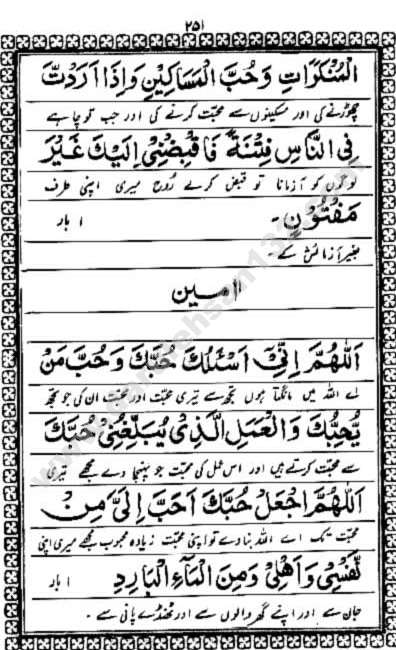 ۲۵۱
الْمُنْكَرَاتِ وَحُبَّ الْمَسَاكِيْنِ وَاِذَا اَرَدْتَّ
چھوڑنے کی اور مسکینوں سے محبت کرنے کی اور جب تو چاہے
فِي النَّاسِ فِتْنَةً فَاقْبِضْنِيْ اِلَيْكَ غَيْرَ
لوگوں کو آزمانا تو قبض کرلے رُوح میری اپنی طرف
مَفْتُوْنٍ - ۱ بار
بغیر آزمائش کے -
اٰمين
اَللّٰهُمَّ اِنِّيْ اَسْئَلُكَ حُبَّكَ وَحُبَّ مَنْ
اے اللہ میں مانگتا ہوں تجھ سے تیری محبت اور محبت ان کی جو تجھ
يُّحِبُّكَ وَالْعَمَلَ الَّذِيْ يُبَلِّغُنِيْ حُبَّكَ
سے محبت کرتے ہیں اور اس عمل کی محبت جو پہنچا دے مجھے تیری
اَللّٰهُمَّ اجْعَلْ حُبَّكَ اَحَبَّ اِلَيَّ مِنْ
محبت تک اے اللہ بنا دے تو اپنی محبت زیادہ محبوب مجھے میری اپنی
نَّفْسِيْ وَاَهْلِيْ وَمِنَ الْمَآءِ الْبَارِدِ ۱ بار
جان سے اور اپنے گھر والوں سے اور ٹھنڈے پانی سے -